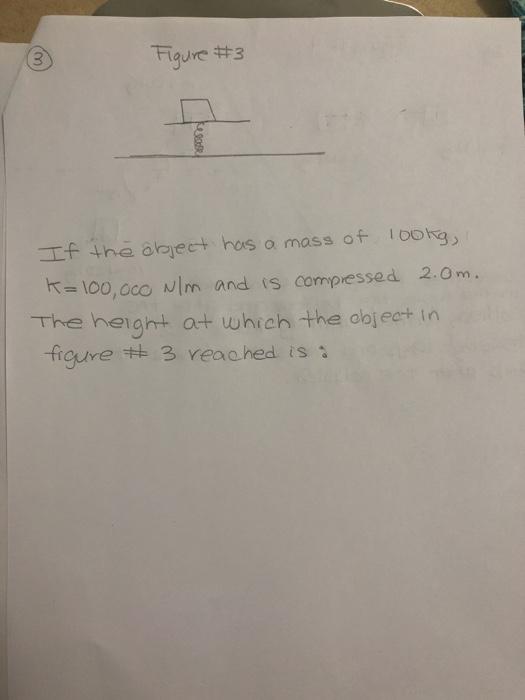 3
Figure #3
If the object has a mass of 100kg,
K=100,000 N/m and is compressed 2.0m.
The height at which the object in
figure # 3 reached is :